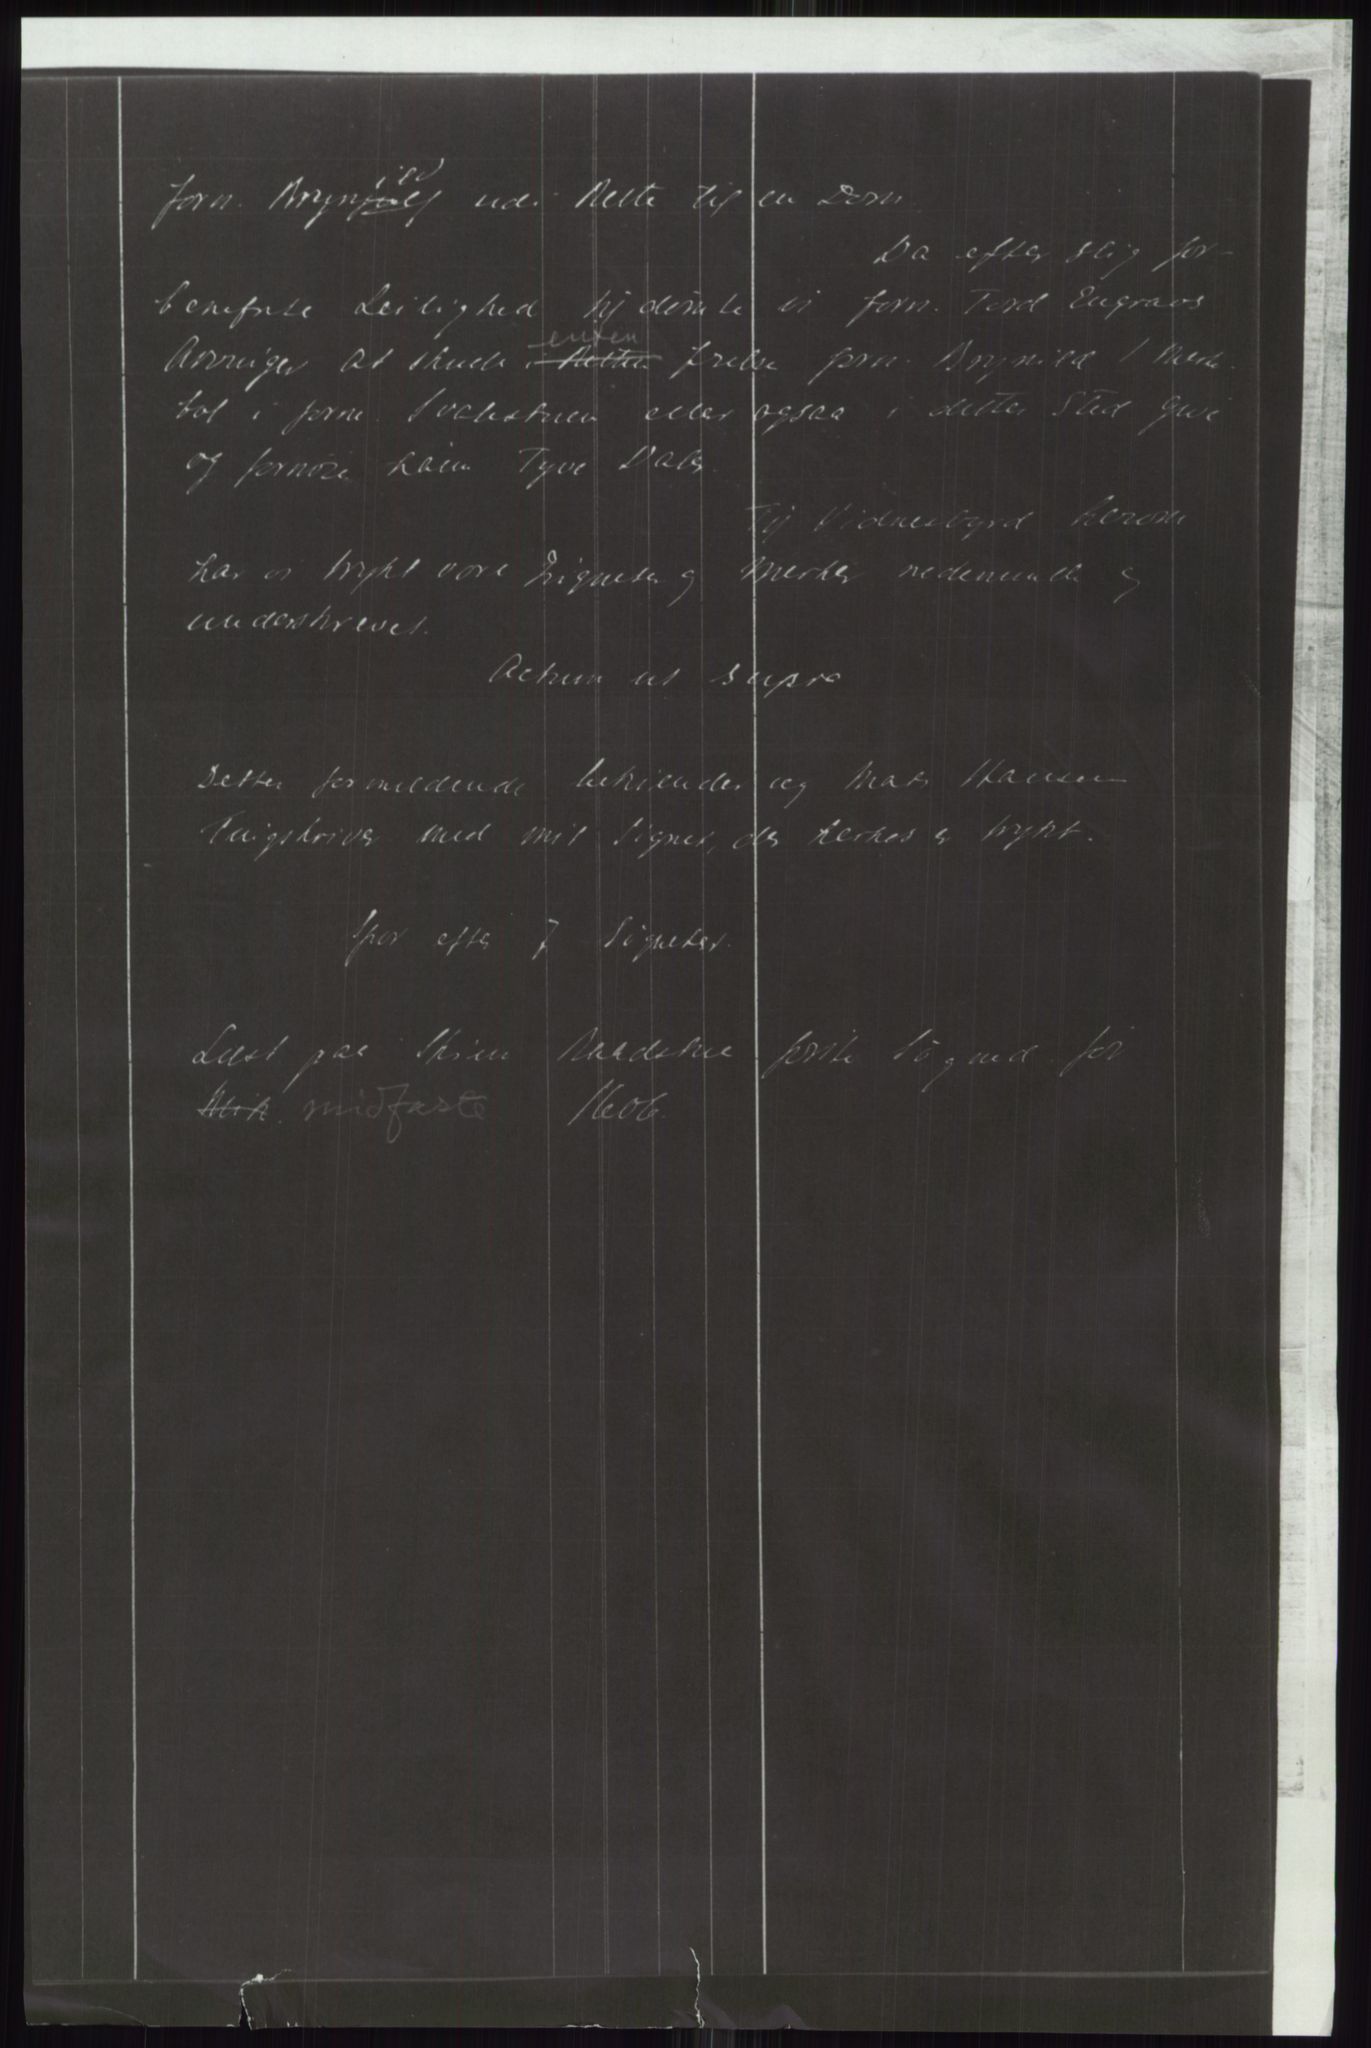 forn. Brynild udi Rette til en Dom.
Da efter slig for-
benefnte Leilighed tij dømte vi forn. Tord Eugraos
Arvinger at skulle enten frelse forn. Brynild 1 Mark-
bol i forn. eller ogsaa i dette Sted give
og fornøie ham Tyve Daler.
Tij Vidnesbyrd herom
har vi trykt vore Zigneter og Merker nedenunder og
underskrevet.
Actum ut supra
Dette formeldende bekiender ieg Mats Hansen
Tingskriver med mit Signet, der herhos er trykt.
Spor efter 7 Signeter.
Lest paa Skien Raadstue første Søgned. for
midfaste 1606.